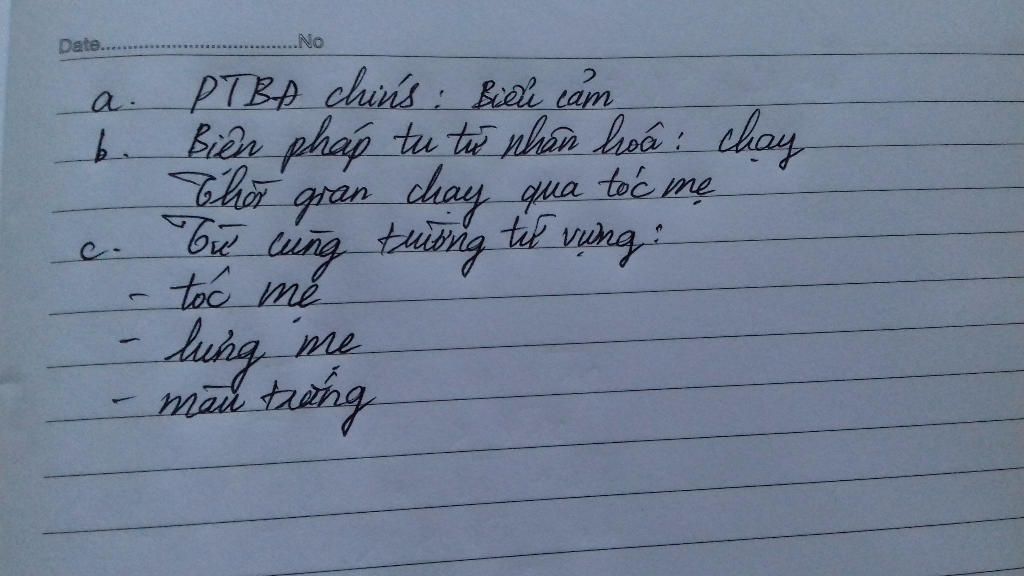 Date.....................................No
a. PTBĐ chính: Biểu cảm
b. Biện pháp tu từ nhân hoá: chạy
Thời gian chạy qua tóc mẹ
c. Từ cùng trường từ vựng:
- tóc mẹ
- lưng mẹ
- màu trắng